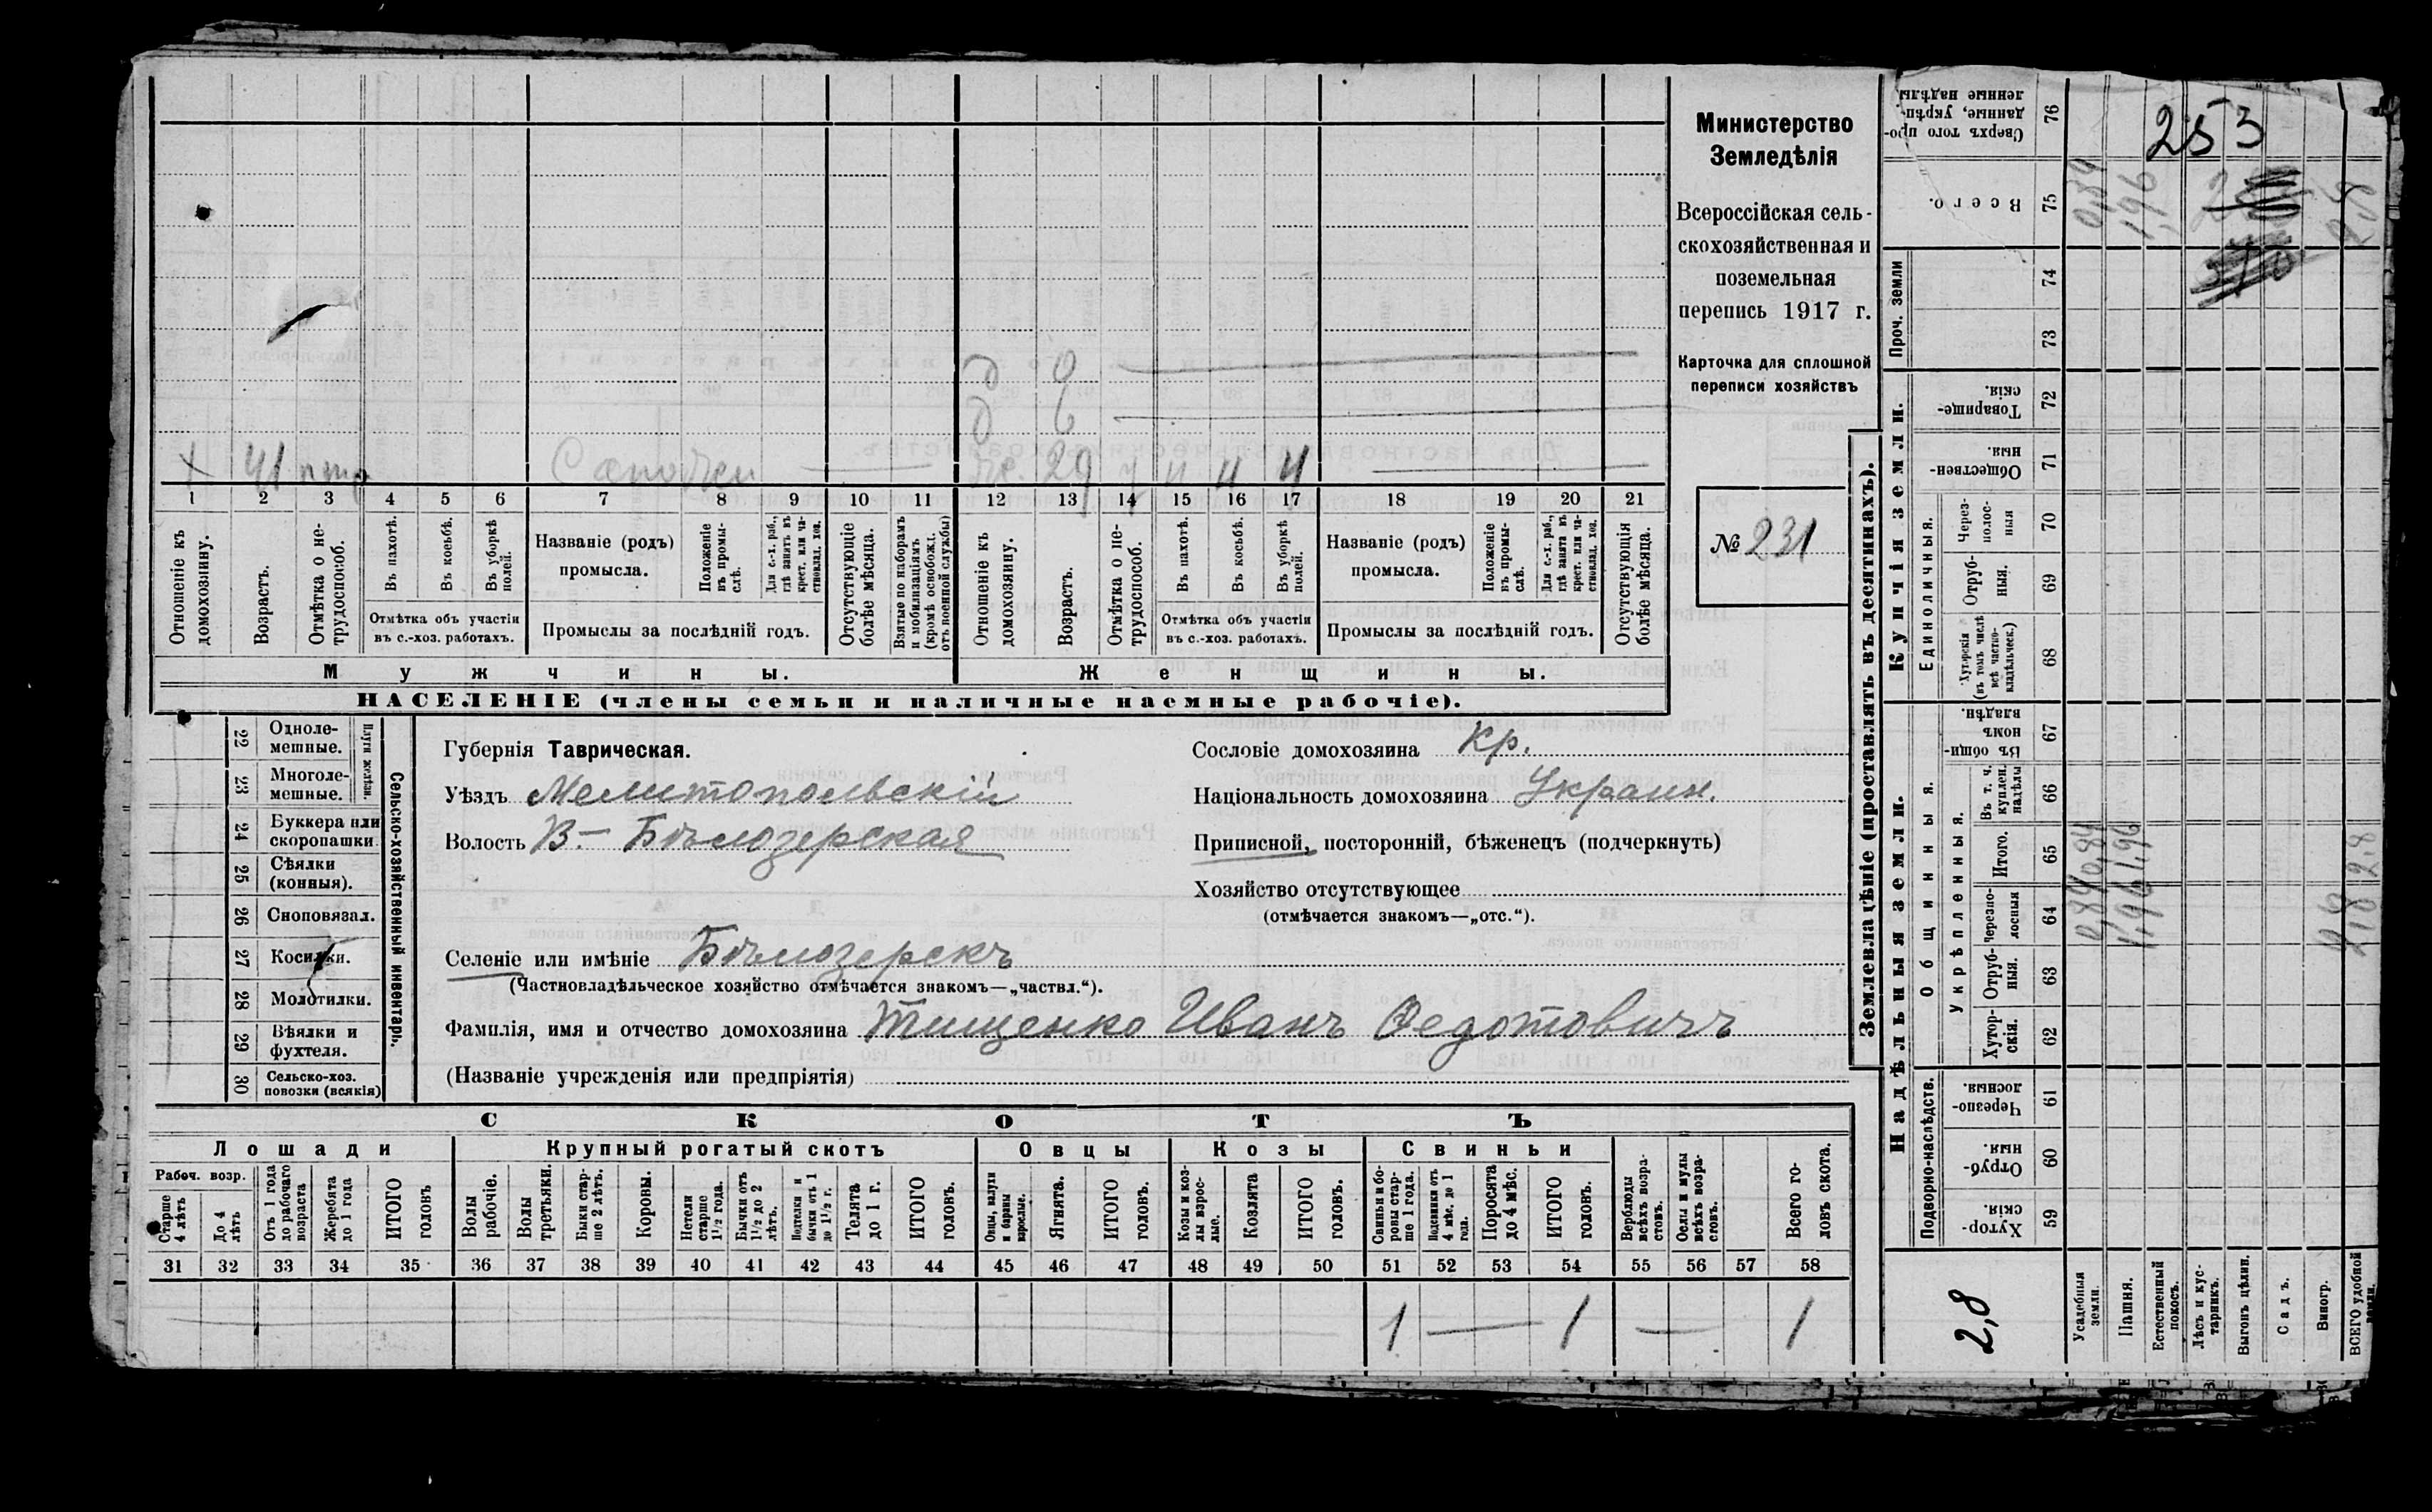 Министерство
Земледѣлія
Всероссійская сель-
скохозяйственная и
поземельная
перепись 1917 г.
Карточка для сплошной
переписи хозяйствъ
№ 231
д
д
х 41 Сапожн ж. 29 ч ч ч
1 2 3 4 5 6 7 8 9 10 11 12 13 14 15 16 17 18 19 20 21
Отношеніе къ домохозяину.
Возрастъ.
Отмѣтка о не-трудоспособ.
Въ пахотѣ.
Въ косьбѣ.
Въ уборкѣ полей.
Отмѣтка объ участіи
въ с.-хоз. работахъ.
Названіе (родъ)
промысла.
Положеніе въ промы-слѣ.
Для с.-х. раб., гдѣ занятъ въ крест. или ча-стновлад. хоз.
Промыслы за послѣдній годъ.
Отсутствующіе болѣе мѣсяца.
Взятые по наборамъ и мобилизаціямъ (кромѣ освобожд. отъ военной службы)
Отношеніе къ домохозяину.
Возрастъ.
Отмѣтка о не-трудоспособ.
Въ пахотѣ.
Въ косьбѣ.
Въ уборкѣ полей.
Отмѣтка объ участіи
въ с.-хоз. работахъ.
Названіе (родъ)
промысла.
Положеніе въ промы-слѣ.
Для с.-х. раб., гдѣ занята въ крест. или ча-стновлад. хоз.
Промыслы за послѣдній годъ.
Отсутствующія болѣе мѣсяца.
Мужчины. Женщины.
НАСЕЛЕНІЕ (члены семьи и наличные наемные рабочіе).
Сельско-хозяйственный инвентарь.
Плуги желѣзн.
22 Одноле-мешные.
23 Многоле-мешные.
24 Буккера или скоропашки
25 Сѣялки (конныя).
26 Сноповязал.
27 Косилки.
28 Молотилки.
29 Вѣялки и фухтеля.
30 Сельско-хоз. повозки (всякія)
Губернія Таврическая.
Уѣздъ Мелитопольскій
Волость В- Бѣлозерская
Сословіе домохозяина Кр.
Національность домохозяина Украин.
Приписной, посторонній, бѣженецъ (подчеркнуть)
Хозяйство отсутствующее
(отмѣчается знакомъ—„отс.“).
Селеніе или имѣніе Бѣлозерскъ
(Частновладѣльческое хозяйство отмѣчается знакомъ—„частвл.“).
Фамилія, имя и отчество домохозяина Тищенко Иванъ Федотовичъ
(Названіе учрежденія или предпріятія)
СКОТЪ
Лошади Крупный рогатый скотъ Овцы Козы Свиньи
Рабоч. возр.
Старше 4 лѣтъ
До 4 лѣтъ
Отъ 1 года до рабочаго возраста
Жеребята до 1 года
ИТОГО головъ
Волы рабочіе.
Волы третьяки.
Быки стар-ше 2 лѣтъ.
Коровы.
Нетели старше 1½ года.
Бычки отъ 1½ до 2 лѣтъ.
Подтелки и бычки отъ 1 до 1½ г.
Телята до 1 г.
ИТОГО головъ.
Овцы, валухи и бараны взрослые.
Ягнята.
ИТОГО головъ.
Козы и коз-лы взрос-лые.
Козлята
ИТОГО головъ.
Свиньи и бо-ровы стар-ше 1 года.
Подсвинки отъ 4 мѣс. до 1 года.
Поросята до 4 мѣс.
ИТОГО головъ.
Верблюды всѣхъ возра-стовъ.
Ослы и мулы всѣхъ возра-стовъ.
Всего го-ловъ скота.
31 32 33 34 35 36 37 38 39 40 41 42 43 44 45 46 47 48 49 50 51 52 53 54 55 56 57 58
1 — 1 — 1
Землевладѣніе (проставлять въ десятинахъ).
Купчія земли.
Надѣльныя земли.
Проч. земли
Единоличныя.
Общинныя.
Укрѣпленныя.
Подворно-наслѣдств.
76 Сверхъ того про-данные, укрѣп-ленные надѣлы
75 Всего.
74
73
72 Товарище-скія.
71 Обществен-ныя.
70 Через-полос-ныя
69 Отруб-ныя.
68 Хуторскія (въ томъ числѣ всѣ частно-владѣльческ.)
67 Въ общи-номъ владѣн.
66 Въ т. ч. куплен. надѣлы
65 Итого.
64 Черезпо-лосныя
63 Отруб-ныя.
62 Хутор-скія.
61 Черезпо-лосныя.
60 Отруб-ныя
59 Хутор-скія.
253
0,84 1,96 2,8
0,84 1,96 2,8
0,84 1,96 2,8
2,8
Усадебныя земли.
Пашня.
Естественный покосъ.
Лѣсъ и кус-тарникъ.
Выгонъ цѣлин.
Садъ.
Виногр.
ВСЕГО удобной земли.